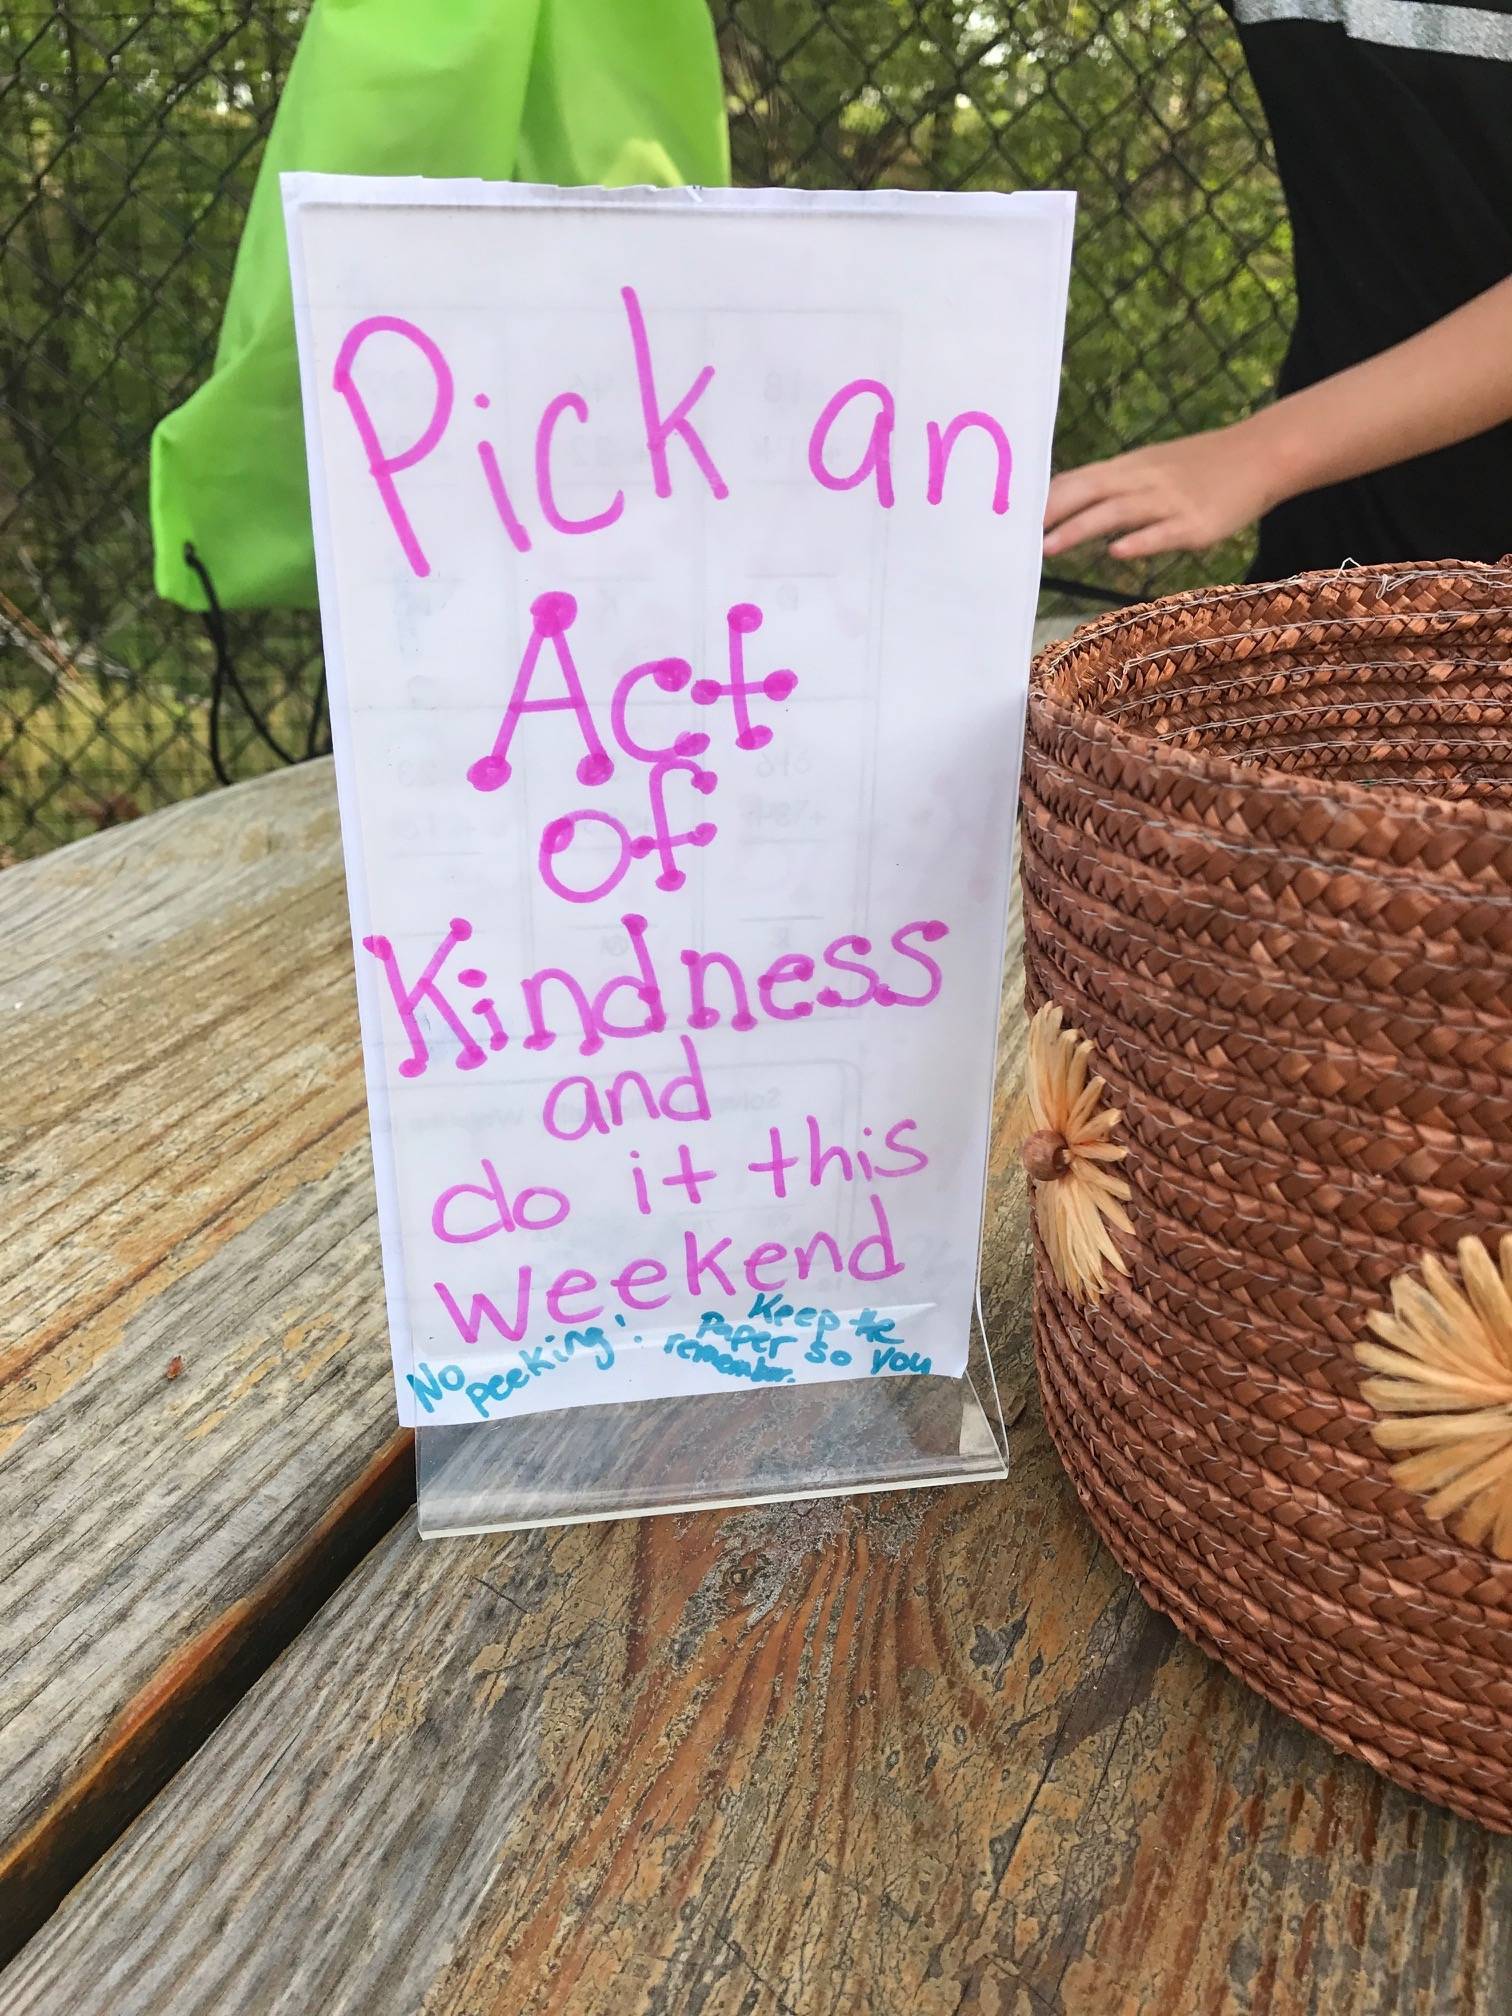 Pick an
Act
of
Kindness
and
do it this
weekend
No peeking!
Keep the
Paper so you
remember.